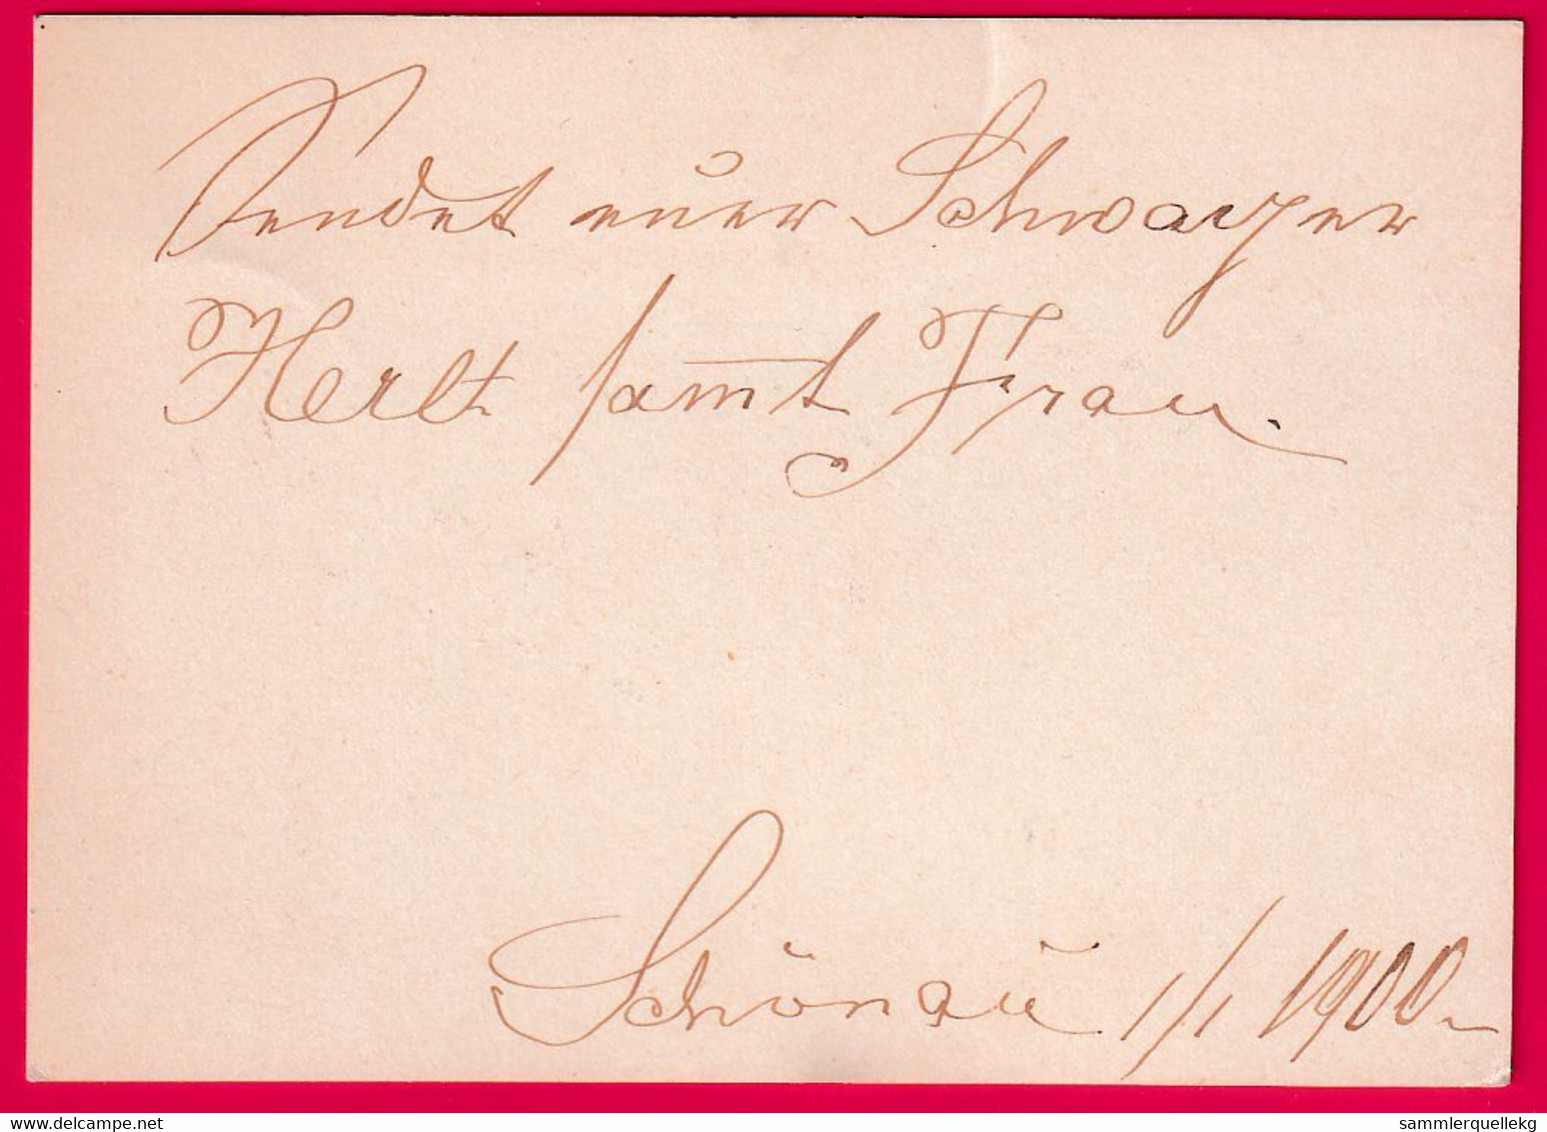 Sendet euer Schwager
Herlt sammt Frau.
Schönau 1/1 1900
www.delcampe.net
sammlerquellekg